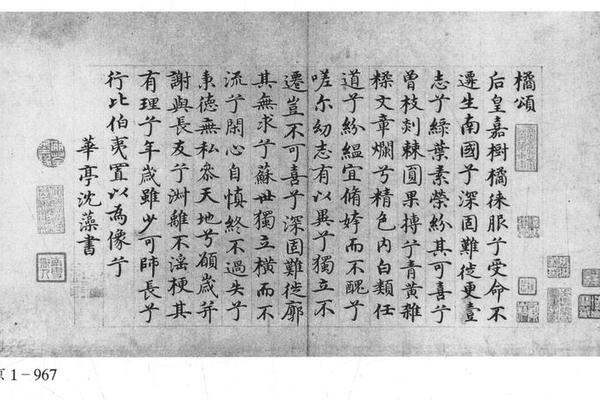 橘頌
后皇嘉樹橘徠服兮受命不
遷生南國兮深固難徙更壹
志兮綠葉素榮紛其可喜兮
曾枝剡棘圓果摶兮青黃雜
糅文章爛兮精色內白類任
道兮紛縕宜脩姱而不醜兮
嗟尔幼志有以異兮獨立不
遷豈不可喜兮深固難徙廓
其無求兮蘇世獨立橫而不
流兮閑心自慎終不過失兮
秉德無私參天地兮願歲并
謝與長友兮淑離不淫梗其
有理兮年歲雖少可師長兮
行比伯夷置以為像兮
華亭沈藻書
京 1－967